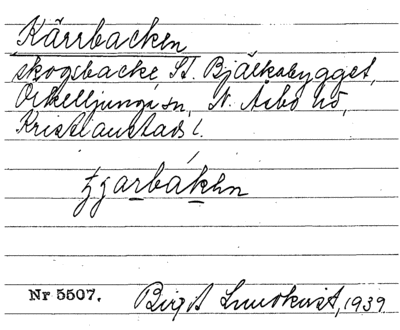 Kärrbacken
skogsbacke St. Bjälkabygget,
Örkelljunga sn, N. Åsbo hd,
Kristianstads l.
Nr 5507.
Birgit Lundkvist, 1939